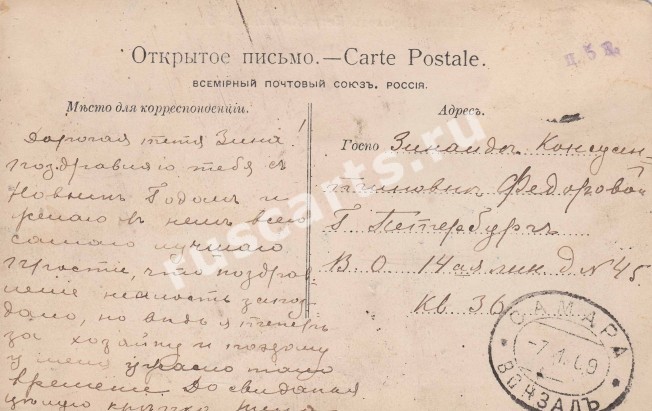 Открытое письмо.—Carte Postale.
ц. 5 к.
ВСЕМІРНЫЙ ПОЧТОВЫЙ СОЮЗЪ. РОССІЯ.
Мѣсто для корреспонденціи.
Дорогая тетя Зина!
поздравляю тебя съ
Новымъ Годомъ и
желаю въ немъ всего
самаго лучшаго
прости, что поздрав
ление немного запоз
дало, но ведь я теперь
за хозяйку и поэтому
у меня ужасно мало
времени До свиданья
цѣлую крѣпко
Адресъ.
Госпо Зинаиды Констан-
тиновны Федоровой
Г Петербургъ
В О 14 ая лин д N 45
кв 36
САМАРА
-7.1.09
ВОКЗАЛЪ
ruscarts.ru